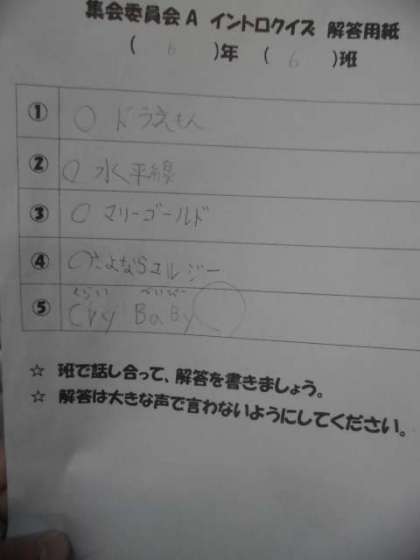 集会委員会A イントロクイズ 解答用紙
( 6 )年 ( 6 )班
① ○ ドラえもん
② ○ 水平線
③ ○ マリーゴールド
④ ○ さよならエレジー
くらい べいびー
⑤ Cry BaBy ○
☆ 班で話し合って、解答を書きましょう。
☆ 解答は大きな声で言わないようにしてください。